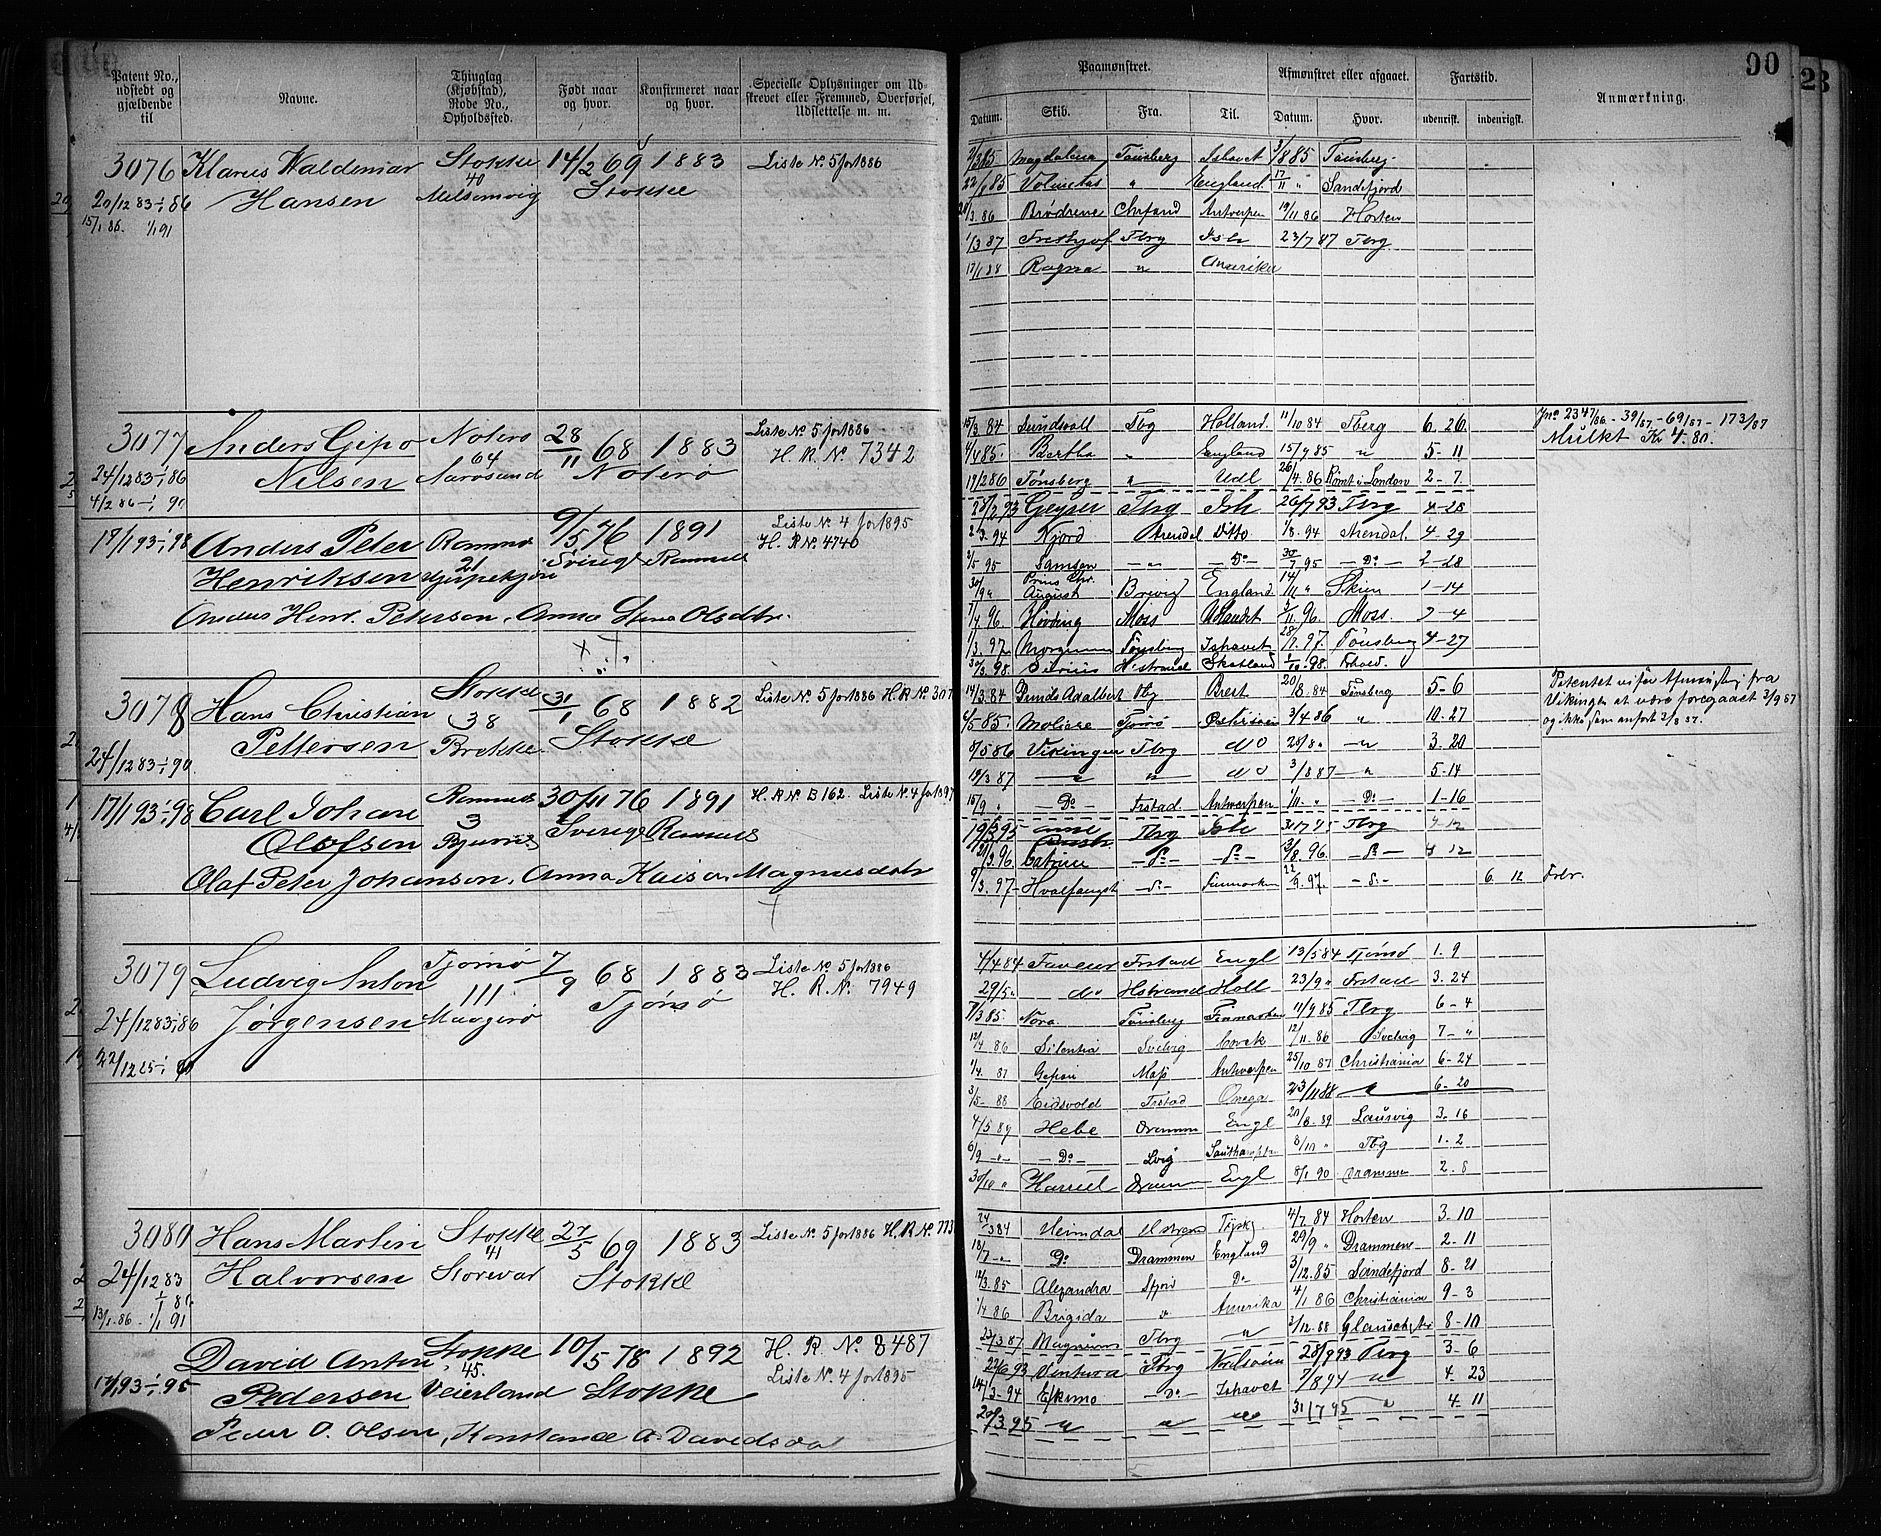 90
23
Patent No., udstedt og gjældende til
Navne.
Thinglag (Kjøbstad), Rode No., Opholdssted.
Født naar og hvor.
Konfirmeret naar og hvor.
Specielle Oplysninger om Udskrevet eller Fremmed, Overførsel, Udslettelse m. m.
Paamønstret.
Afmønstret eller afgaaet.
Fartstid.
Anmærkning.
Datum. Skib. Fra. Til. Datum. Hvor. udenrigsk. indenrigsk.
3076 Klarus Waldemar Stokke 14/2 69 1883 Liste No 5 for 1886
20/12 83 1/1 86 Hansen 40 Melsomvig Stokke
15/1 86. 1/1 91
Magdalena Tønsberg Ishavet 3/8 85 Tønsberg
Voluntas " England 17/11 " Sandefjord
3.86 Brødrene Antverpen 19/11 86 Horten
1/3 87 Tbrg Ish 23/7 87 Tbrg
Ragna " Amerika
3077 Anders Gipø Nøterø 28/11 68 1883 Liste No 5 for 1886
24/12 83 1/1 86 Nilsen 64 Aarøsund Nøterø H. R. No. 7342
4/2 86 1/1 90
15/3 84 Sundsvall Tbg Holland 11/10 84 Tberg 6. 26
Bertha " England 15/9 85 " 5 - 11
19/2 86 Tønsberg " Udl 26/4. 86 Rømt i London 2 - 7.
Jno 2347/86 - 39/87 - 69/87 - 173/87
Mulkt Kr 4.80.
17/1 93 1/1 98 Anders Peter Ramnæs 9/5 76 1891 Liste No 4 for 1895
Henriksen 21 Sverige Ramnæs H. R No. 4740
Anders Henr. Petersen, Anna Stina Olsdtr.
28/2 93 Geyser Tbrg Ish 26/7 93 Tbrg 4 - 28
2/3. 94 Kjørd Arendal Ditto 1/8. 94 Arendal 4 - 29
2/5 95 Samson - " - - Do - 30/7 95 - Do - 2 - 28
30/9 " Prins Chr. August Brevig England 14/11 " Skien 1 - 14
7/7 96 Høvding Moss Udlandet 5/11 96 Moss. 3 - 4
1/3. 97 Morgenen Tønsberg Ishavet 28/7. 97. Tønsberg 4 - 27
30/3. 98 Sirius Skotland 1/10. 98.
3078 Hans Christian Stokke 31/1 68 1882 Liste No. 5 for 1886 H. R. No. 307
24/12 83 1/1 90 Pettersen 38 Brekke Stokke
14/3. 84 Gunds Adalbert Tbg Brest 20/8. 84 Tønsberg 5 - 6
4/5 85 Moliere Tjømø 3/4 86 " 10. 27
8/5 86 Vikingen Tbrg do 28/8 " - " 3. 20
19/3 87 - " - " do 3/8 87 - " 5 - 14
15/9 " - Do - Frstad. Antwerpen 1/11. " - Do - 1 - 16
Patentet vi før Afmønstrg fra
Vikingen at være foregaaet 3/9 87
og ikke som anført 3/8 87.
17/1 93 1/1 98 Carl Johan Ramnæs 30/11 76 1891 H. R No. B 162. Liste No. 4 for 1897
Olofsen 3 Sverige Ramnæs
Olaf Peter Johansen, Anna Kaisa Magnusdotr
19/3 95 Tbrg Ish 31/7 95 Tbrg 4 - 12
3. 96. Catrine - Do - - Do - 3/8. 96 - Do - 4 12
9/3. 97 - Hvalfangst - Do - Finmarken 22/9. 97 - Do - 6. 12
3079 Ludvig Anton Tjømø 7/9 68 1883 Liste No. 5 for 1886
24/12 83 1/1 86 Jørgensen 111 Maagerø Tjømø H. R. No. 7949
22/12 85 1/1 90
4/4 84 Faveur Frstad Engl 13/5 84 Tjømø 1. 9
29/5 " do Hstrand Holl 23/9 " Frstad 3. 24
7/3 85 Nora. Tønsberg Finmarken 11/9 85 Tbrg 6 - 4
12/4. 86 Silentia Svelvig Cork 12/11. 86 Svelvig 7 - "
1/4. 87 Gefion Moss Antverpen 25/10 87 Christiania 6 - 24
3/5 - 88 Eidsvold Frstad Onega 23/11 88 " 6 - 20
4/5 89 Hebe Drammen Engl 20/8. 89 Laurvig 3. 16
6/9 - " - - Do - Lvig Southampton 8/10 " Tbg 1. 2
30/10 " Harriet Drammen Engl 8/1 90 Drammen 2. 8
3080 Hans Martin Stokke 27/5 69 1883 Liste No. 5 for 1886 H. R. No. 773
24/12 83 Halvorsen 41 Storevar Stokke
1/1 86
13/1. 86 - 1/1 91
24/3 84 Heimdal Hstrand Tysk 4/7. 84 Horten 3. 10
18/7 - " - Do Drammen England 29/9 " Drammen 2. 11
12/3. 85 Alexandra Sfjord Do 3/12. 85 Sandefjord 8 - 21
1/4 86 Brigida " Amerika 4/1 86 Christiania 9 - 3
23/3 87 Magnus Tbrg " 3/12. 88 8 - 10
17/1 93 1/1 95 David Anton Stokke 10/5 78 1892 H. R No 8487
Pedersen 45. Veierland Stokke Liste No. 4 for 1895
Peder O. Olsen, Konstance A. Davidsdat
22/6 93 Ventura Tbrg 28/9 93 Tbrg 3 - 6
14/3 - 94 Eskimo - Do - Ishavet 7/8 94 " 4. 23
20/3. 95 " " do 31/7 95 " 4. 11